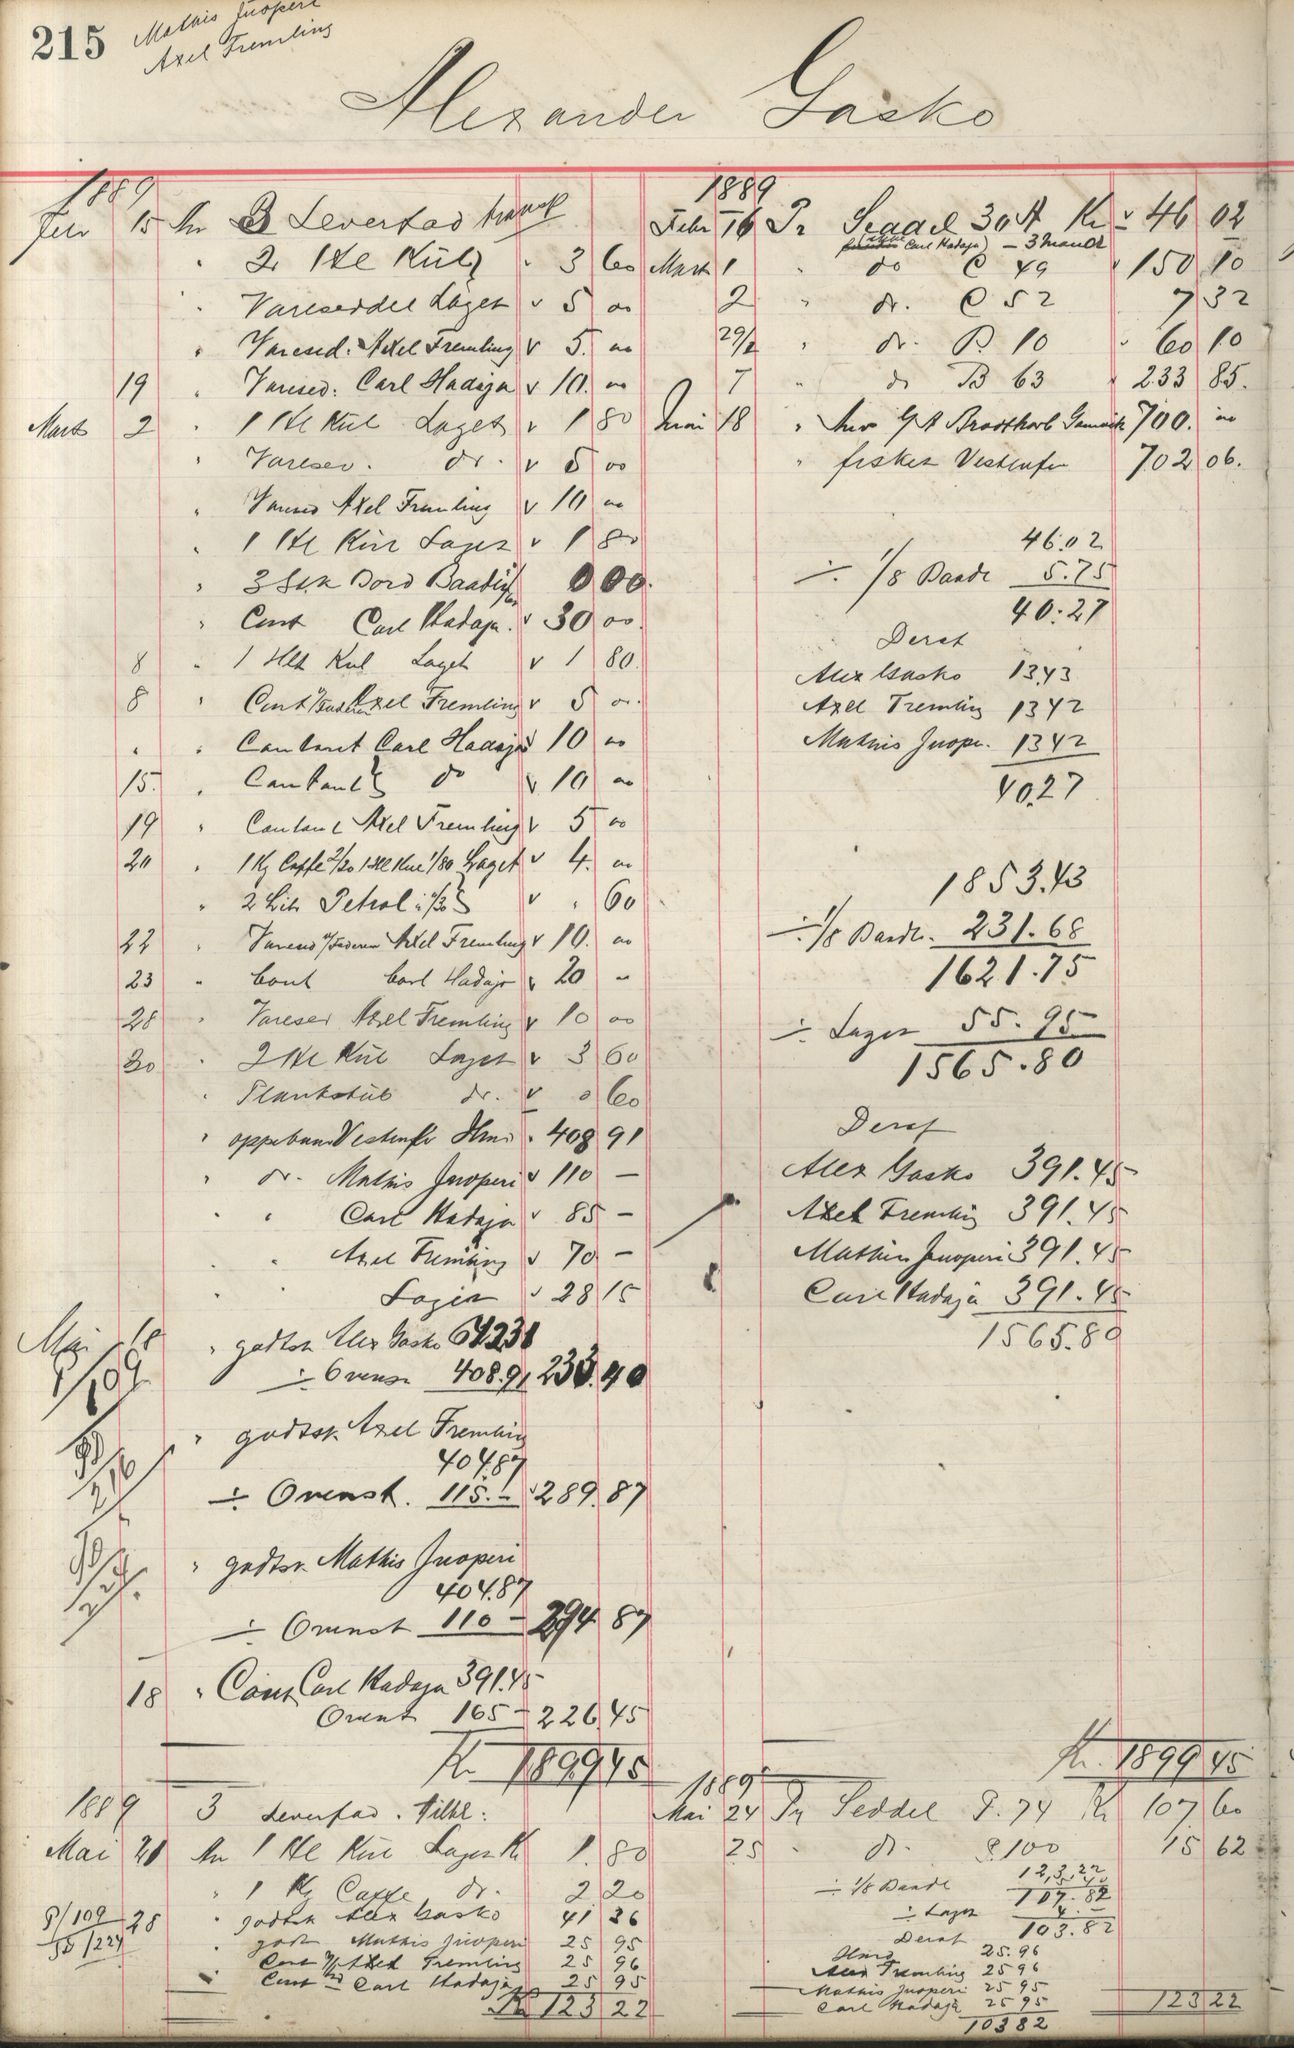 215
Mathis Juoperi
Axel Fremling
Alexander Gasko
1889
Febr 15 An 3 Leverfad transp
" 2 Hl Kul " 3 60
" Vareseddel Laget v 5 00
" Varesed. Axel Fremling v 5. 00
19 " Varesed. Carl Hadaja v 10. 00
Marts 2 " 1 Hl Kul Laget v 1 80
" Varesed. do. v 5 00
" Varesed Axel Fremling v 10 00
" 1 Hl Kul Laget v 1 80
" 3 Stk Bord 0 00.
" Cont Carl Hadaja. v 30 00.
8 " 1 Hlt Kul Laget v 1 80.
8 " Cont Axel Fremling v 5 00.
" " Contant Carl Hadaja v 10 00
15. " Contant do v 10 00
19 " Contant Axel Fremling v 5 00
20 " 1 Kg Caffe 2/20 1 Hl Kul 1/80 Laget v 4. 00
" 2 Litr Petrol à /30 v " 60
22 " Varesed Axel Fremling v 10. 00
23 " Cont Carl Hadaja v 20 -
28 " Varesed Axel Fremling v 10 00
30 " 2 Hl Kul Laget v 3 60
" Plankstub do. v 0 60
" oppebaaret Vestenfor Ham " 408 91
" do. Mathis Juoperi v 110 -
" " Carl Hadaja v 85 -
" " Axel Fremling v 70 -
" " Laget v 28 15
Mai 18 " godtsk. Alex Gasko 642.31
P/109 ÷ Ovenst 408.91 233.40
" godtsk. Axel Fremling
404.87
÷ Ovenst. 115.- 289.87
" godtsk. Mathis Juoperi
404.87
÷ Ovenst 110 - 294 87
18 " Cont Carl Hadaja 391.45
Ovenst 165 - 226.45
Kr 1899 45
1889 3 Leverfad. tilbl:
Mai 21 An 1 Hl Kul Laget Kr 1. 80
" 1 Kg Caffe do. 2 20
P/109 28 " godtsk Alex Gasko 41 36
" godt Mathis Juoperi 25 95
" Cont Axel Fremling 25 96
" Cont Carl Hadaja 25 95
Kr 123 22
1889
Febr 16 Pr Seddel 30 A Kr v 46 02
Carl Hadaja) - 3 Mand
Marts 1 " do C 49 " 150 10
2 " do. C 52 7 32
29/2 " do. B 10 " 60 10
7 " do B 63 " 233 85.
Juni 18 " G A Brodtkorb Gamvik 700. 00
" fisket Vestenfor 702 06.
46.02
÷ 1/8 Baade 5.75
40.27
Deraf
Alex Gasko 13.43
Axel Fremling 1342
Mathis Juope. 1342
40.27
1853.43
÷ 1/8 Baade. 231.68
1621.75
÷ Laget 55.95
1565.80
Deraf
Alex Gasko 391.45
Axel Fremling 391.45
Mathis Juoperi 391.45
Carl Hadaja 391.45
1565.80
Kr. 1899 45
1889
Mai 24 Pr Seddel P. 74 Kr 107 60
25 " do. P 100 15 62
123.22
÷ 1/8 Baade 15.40
107.82
÷ Laget 4.-
Deraf 103.82
Ham 25.96
Axel Fremling 25 96
Mathis Juoperi 25 95
Carl Hadaja 25 95
103 82
123 22